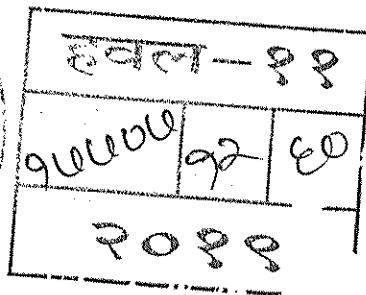 हवल-११
१५५०५ १२ ६०
२०११